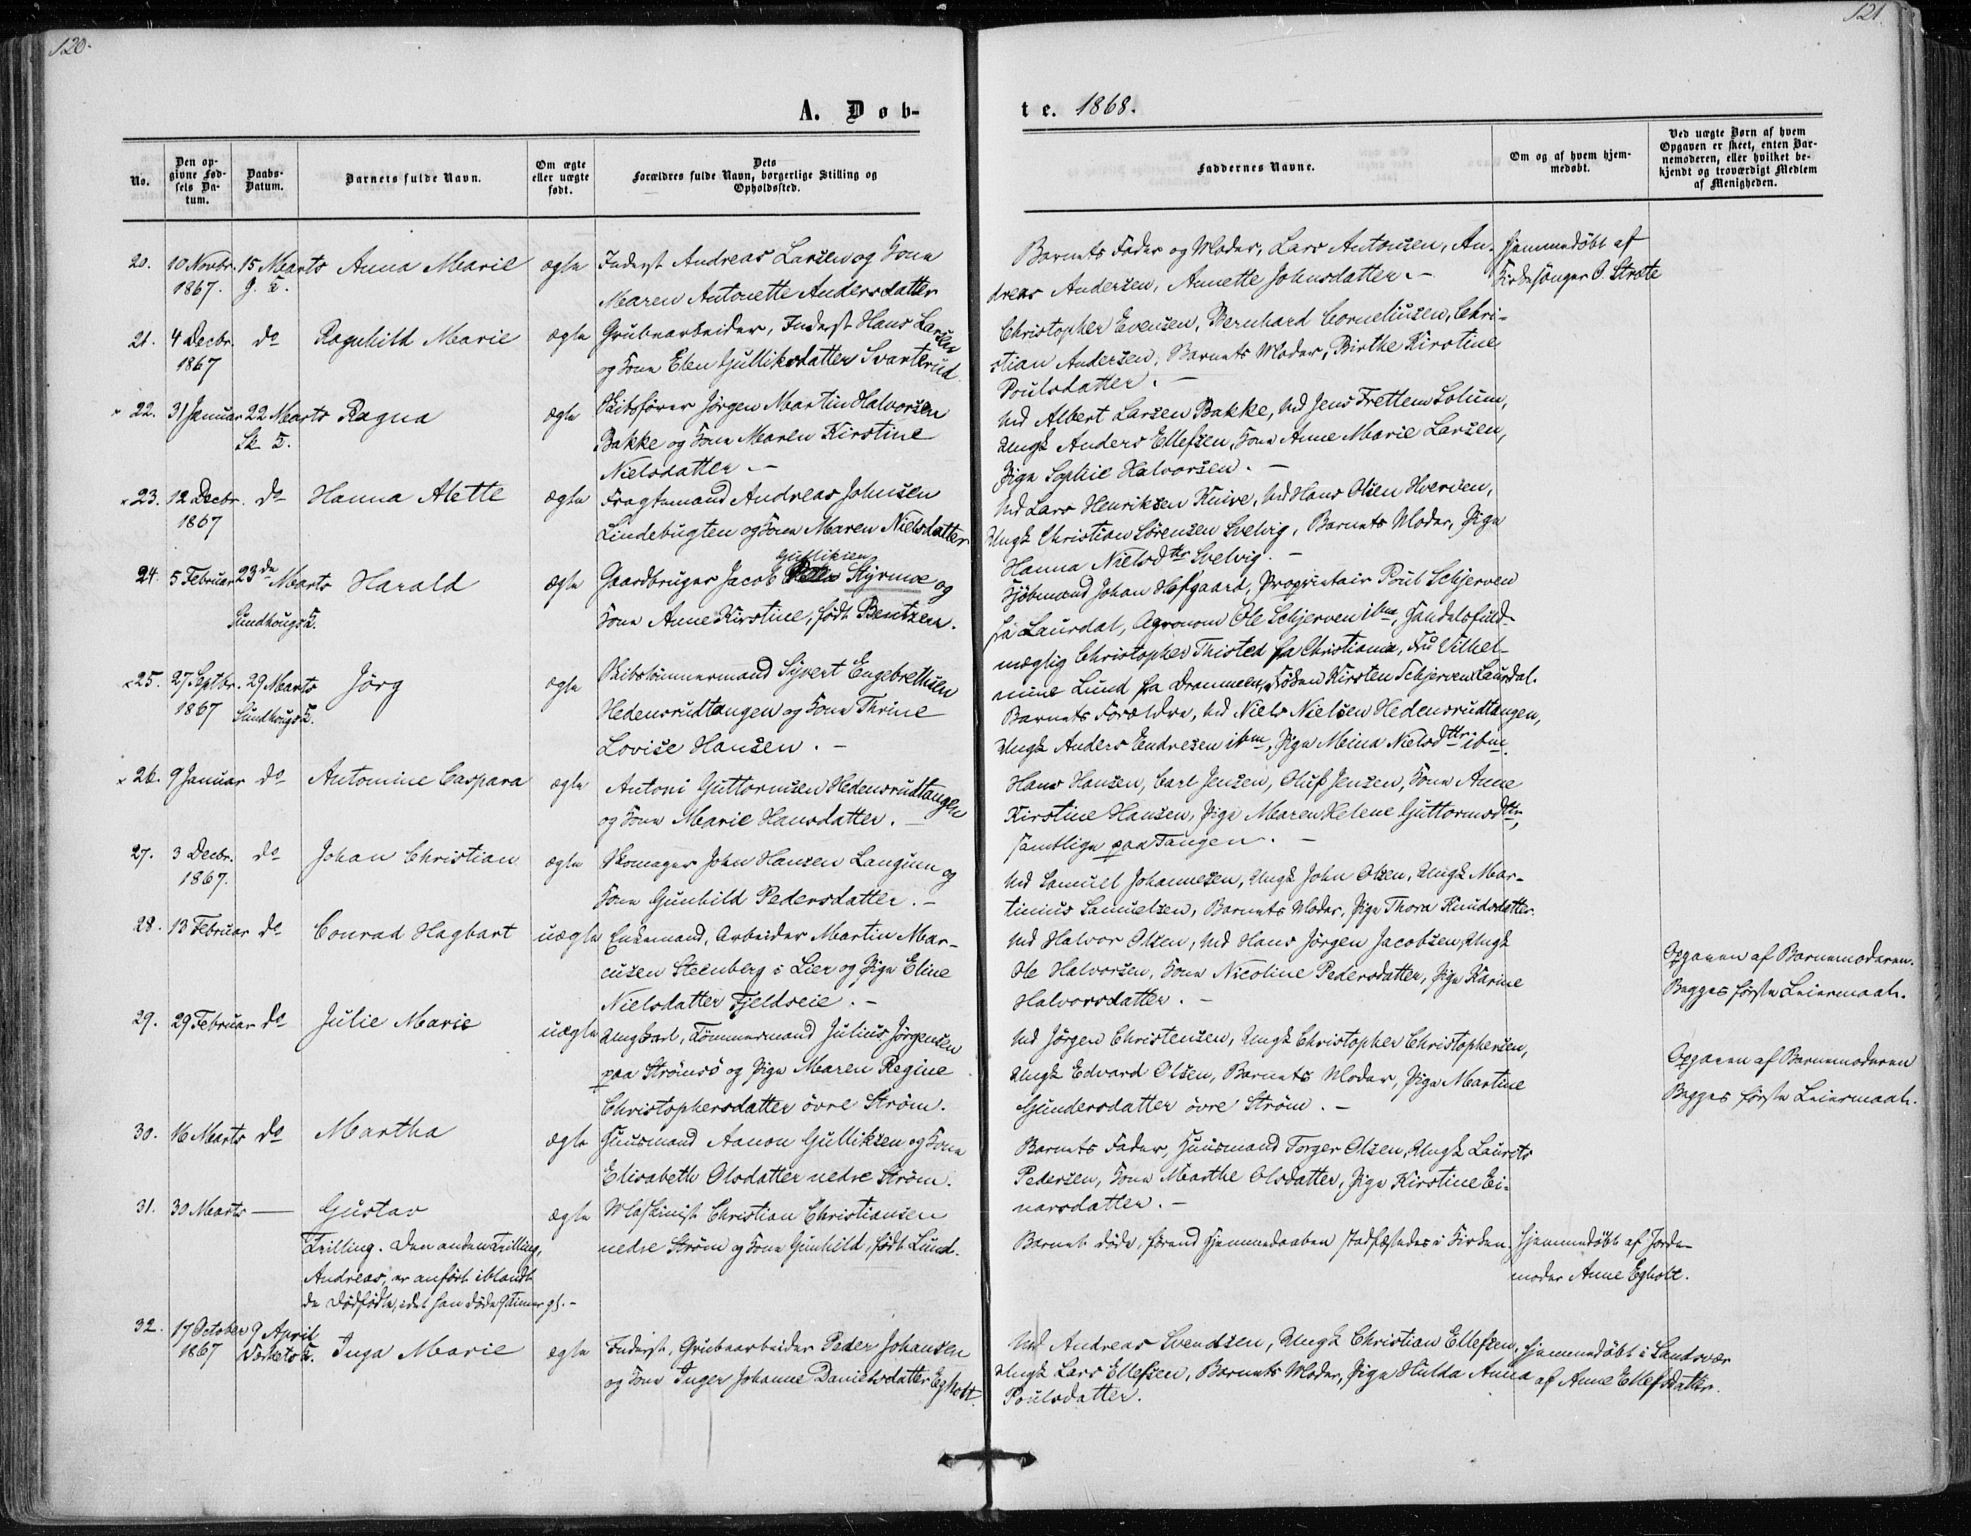 120.
121.
A. Døb-
te. 1868.
No.
Den op-
givne Fød-
sels Da-
tum.
Daabs-
Datum.
Barnets fulde Navn.
Om ægte
eller uægte
født.
Dets
Forældres fulde Navn, borgerlige Stilling og
Opholdssted.
Faddernes Navne.
Om og af hvem hjem-
medøbt.
Ved uægte Børn af hvem
Opgaven er skeet, enten Bar-
nemoderen, eller hvilket be-
kjendt og troværdigt Medlem
af Menigheden.
20. 10 Novbr. 15 Marts Anna Marie ægte Inderst Andreas Larsen og Kone
1867. g. T.
Maren Antonette Andersdatter
Barnets Fader og Moder, Lars Antonsen, An-
dreas Andersen, Annette Johnsdatter. -
Hjemmedøbt af
Kirkesanger O. Strøte
21. 4 Decbr. do Ragnhild Marie ægte Grubearbeider, Inderst Hans Larsen
1867
og Kone Elen Gulliksdatter Svarterud
Christopher Evensen, Bernhard Corneliusen, Chri-
stian Andersen, Barnets Moder, Birthe Kirstine
Poulsdatter. -
22. 31 Januar 22 Marts Ragna ægte Skibsfører Jörgen Martin Halvorsen
Sk T.
Bakke og Kone Maren Kirstine
Nielsdatter. -
Md Albert Larsen Bakke, Md Jens Frettem Solum,
Ungk Anders Ellefsen, Kone Anne Marie Larsen,
Pige Sophie Halvorsen. -
23. 12 Decbr. do Hanna Alette ægte Fragtemand Andreas Johnsen
1867
Lindebugten og Kone Maren Nielsdatter
Md Lars Henriksen Knive, Md Hans Olsen Hvervén,
Ungk Christian Sörensen Svelvig, Barnets Moder, Pige
Hanna Nielsdtr Svelvig. -
24. 5 Februar 23de Marts Harald ægte Gaardbruger Jacob Gulliksen Styrmoe og
Sundhougs T.
Kone Anne Kirstine, født Bentzen.
Kjöbmand Johan Hofgaard, Proprietair Poul Schjerven
fra Laurdal, Agronom Ole Schjerven ibm, Handelsfuld-
mægtig Christopher Thisted fra Christiania, Fru Vilhel-
mine Lund fra Drammen, Frøken Kirsten Schjerven Laurdal.
25. 27 Septbr. 29 Marts Jörg ægte Skibstømmermand Syvert Engebrethsen
1867 Sundhougs T.
Hedensrudtangen og Kone Thrine
Lovise Hansen. -
Barnets Forældre, Md Niels Nielsen Hedensrudtangen,
Ungk Anders Endresen ibm, Pige Meina Nielsdtr ibm.
26. 9 Januar do Antomine Caspara ægte Antoni Guttormsen Hedensrudtangen
og Kone Marie Hansdatter. -
Hans Hansen, Carl Jensen, Oluf Jensen, Kone Anne
Kirstine Hansen, Pige Maren Helene Guttormsdtr,
samtlige paa Tangen. -
27. 3 Decbr. do Johan Christian ægte Skomager John Hansen Langum og
1867.
Kone Gunhild Pedersdatter. -
Md Samuel Johannesen, Ungk John Olsen, Ungk Mar-
tinius Samuelsen, Barnets Moder, Pige Thora Knudsdatter.
28. 13 Februar do Conrad Hagbart uægte Enkemand, Arbeider Martin Mar-
cusen Steenberg i Lier og Pige Eline
Nielsdatter Fjeldseie. -
Md Halvor Olsen, Md Hans Jörgen Jacobsen, Ungk
Ole Halvorsen, Kone Nicoline Pedersdatter, Pige Karine
Halvorsdatter. -
Opgaven af Barnemoderen.
Begges første Leiermaal.
29. 29 Februar do Julie Marie uægte Ungkarl, Tömmermand Julius Jørgensen
paa Strömsö og Pige Maren Regine
Christophersdatter övre Ström.
Md Jörgen Christensen, Ungk Christopher Christophersen,
Ungk Edvard Olsen, Barnets Moder, Pige Martine
Gundersdatter övre Ström. -
Opgaven af Barnemoderen
Begges første Leiermaal.
30. 16 Marts do Martha ægte Huusmand Aanon Gulliksen og Kone
Elisabeth Olsdatter nedre Ström.
Barnets Fader, Huusmand Torger Olsen, Ungk Laurits
Pedersen, Kone Marthe Olsdatter, Pige Kirstine Ei-
narsdatter. -
31. 30 Marts — Gustav ægte Maskinist Christian Christiansen
Tvilling. Den anden Tvilling,
Andreas, er anført iblandt
de Dødfødte, idet han døde 9 Timer gl. -
nedre Ström og Kone Gunhild, født Lund.
Barnet døde, førend Hjemmedaaben stadfæstedes i Kirken.
Hjemmedøbt af Jorde-
moder Anne Egholt.
32. 17 October 9 April Inga Marie ægte Inderst, Grubearbeider Peder Johansen
1867 Værkets T.
og Kone Inger Johanne Danielsdatter Egholt.
Md Andreas Svendsen, Ungk Christian Ellefsen,
Ungk Lars Ellefsen, Barnets Moder, Pige Hulda Anna
Poulsdatter.
Hjemmedøbt i Sandsvær
af Anne Ellefsdatter.